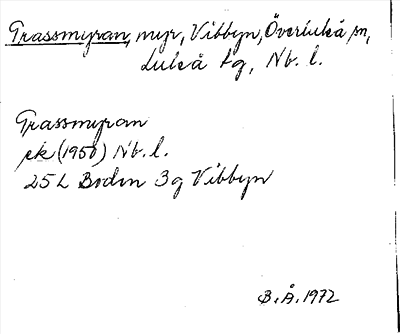 Grassmyran, myr, Vibbyn, Överluleå sn,
Luleå tg, Nb. l.
Grassmyran
ek (1950) Nb. l.
25 L Boden 3g Vibbyn
B. Å. 1972